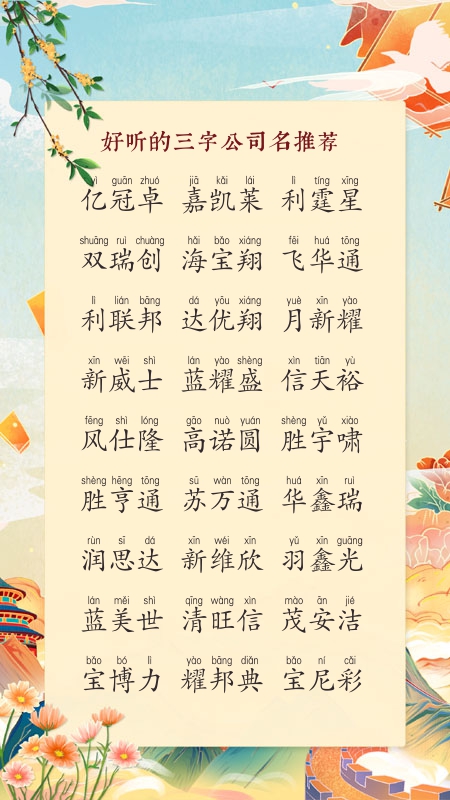 好听的三字公司名推荐
yì guān zhuó jiā kǎi lái lì tíng xīng
亿冠卓 嘉凯莱 利霆星
shuāng ruì chuàng hǎi bǎo xiáng fēi huá tōng
双瑞创 海宝翔 飞华通
lì lián bāng dá yōu xiáng yuè xīn yào
利联邦 达优翔 月新耀
xīn wēi shì lán yào shèng xìn tiān yù
新威士 蓝耀盛 信天裕
fēng shì lóng gāo nuò yuán shèng yǔ xiào
风仕隆 高诺圆 胜宇啸
shèng hēng tōng sū wàn tōng huá xīn ruì
胜亨通 苏万通 华鑫瑞
rùn sī dá xīn wéi xīn yǔ xīn guāng
润思达 新维欣 羽鑫光
lán měi shì qīng wàng xìn mào ān jié
蓝美世 清旺信 茂安洁
bǎo bó lì yào bāng diǎn bǎo ní cǎi
宝博力 耀邦典 宝尼彩